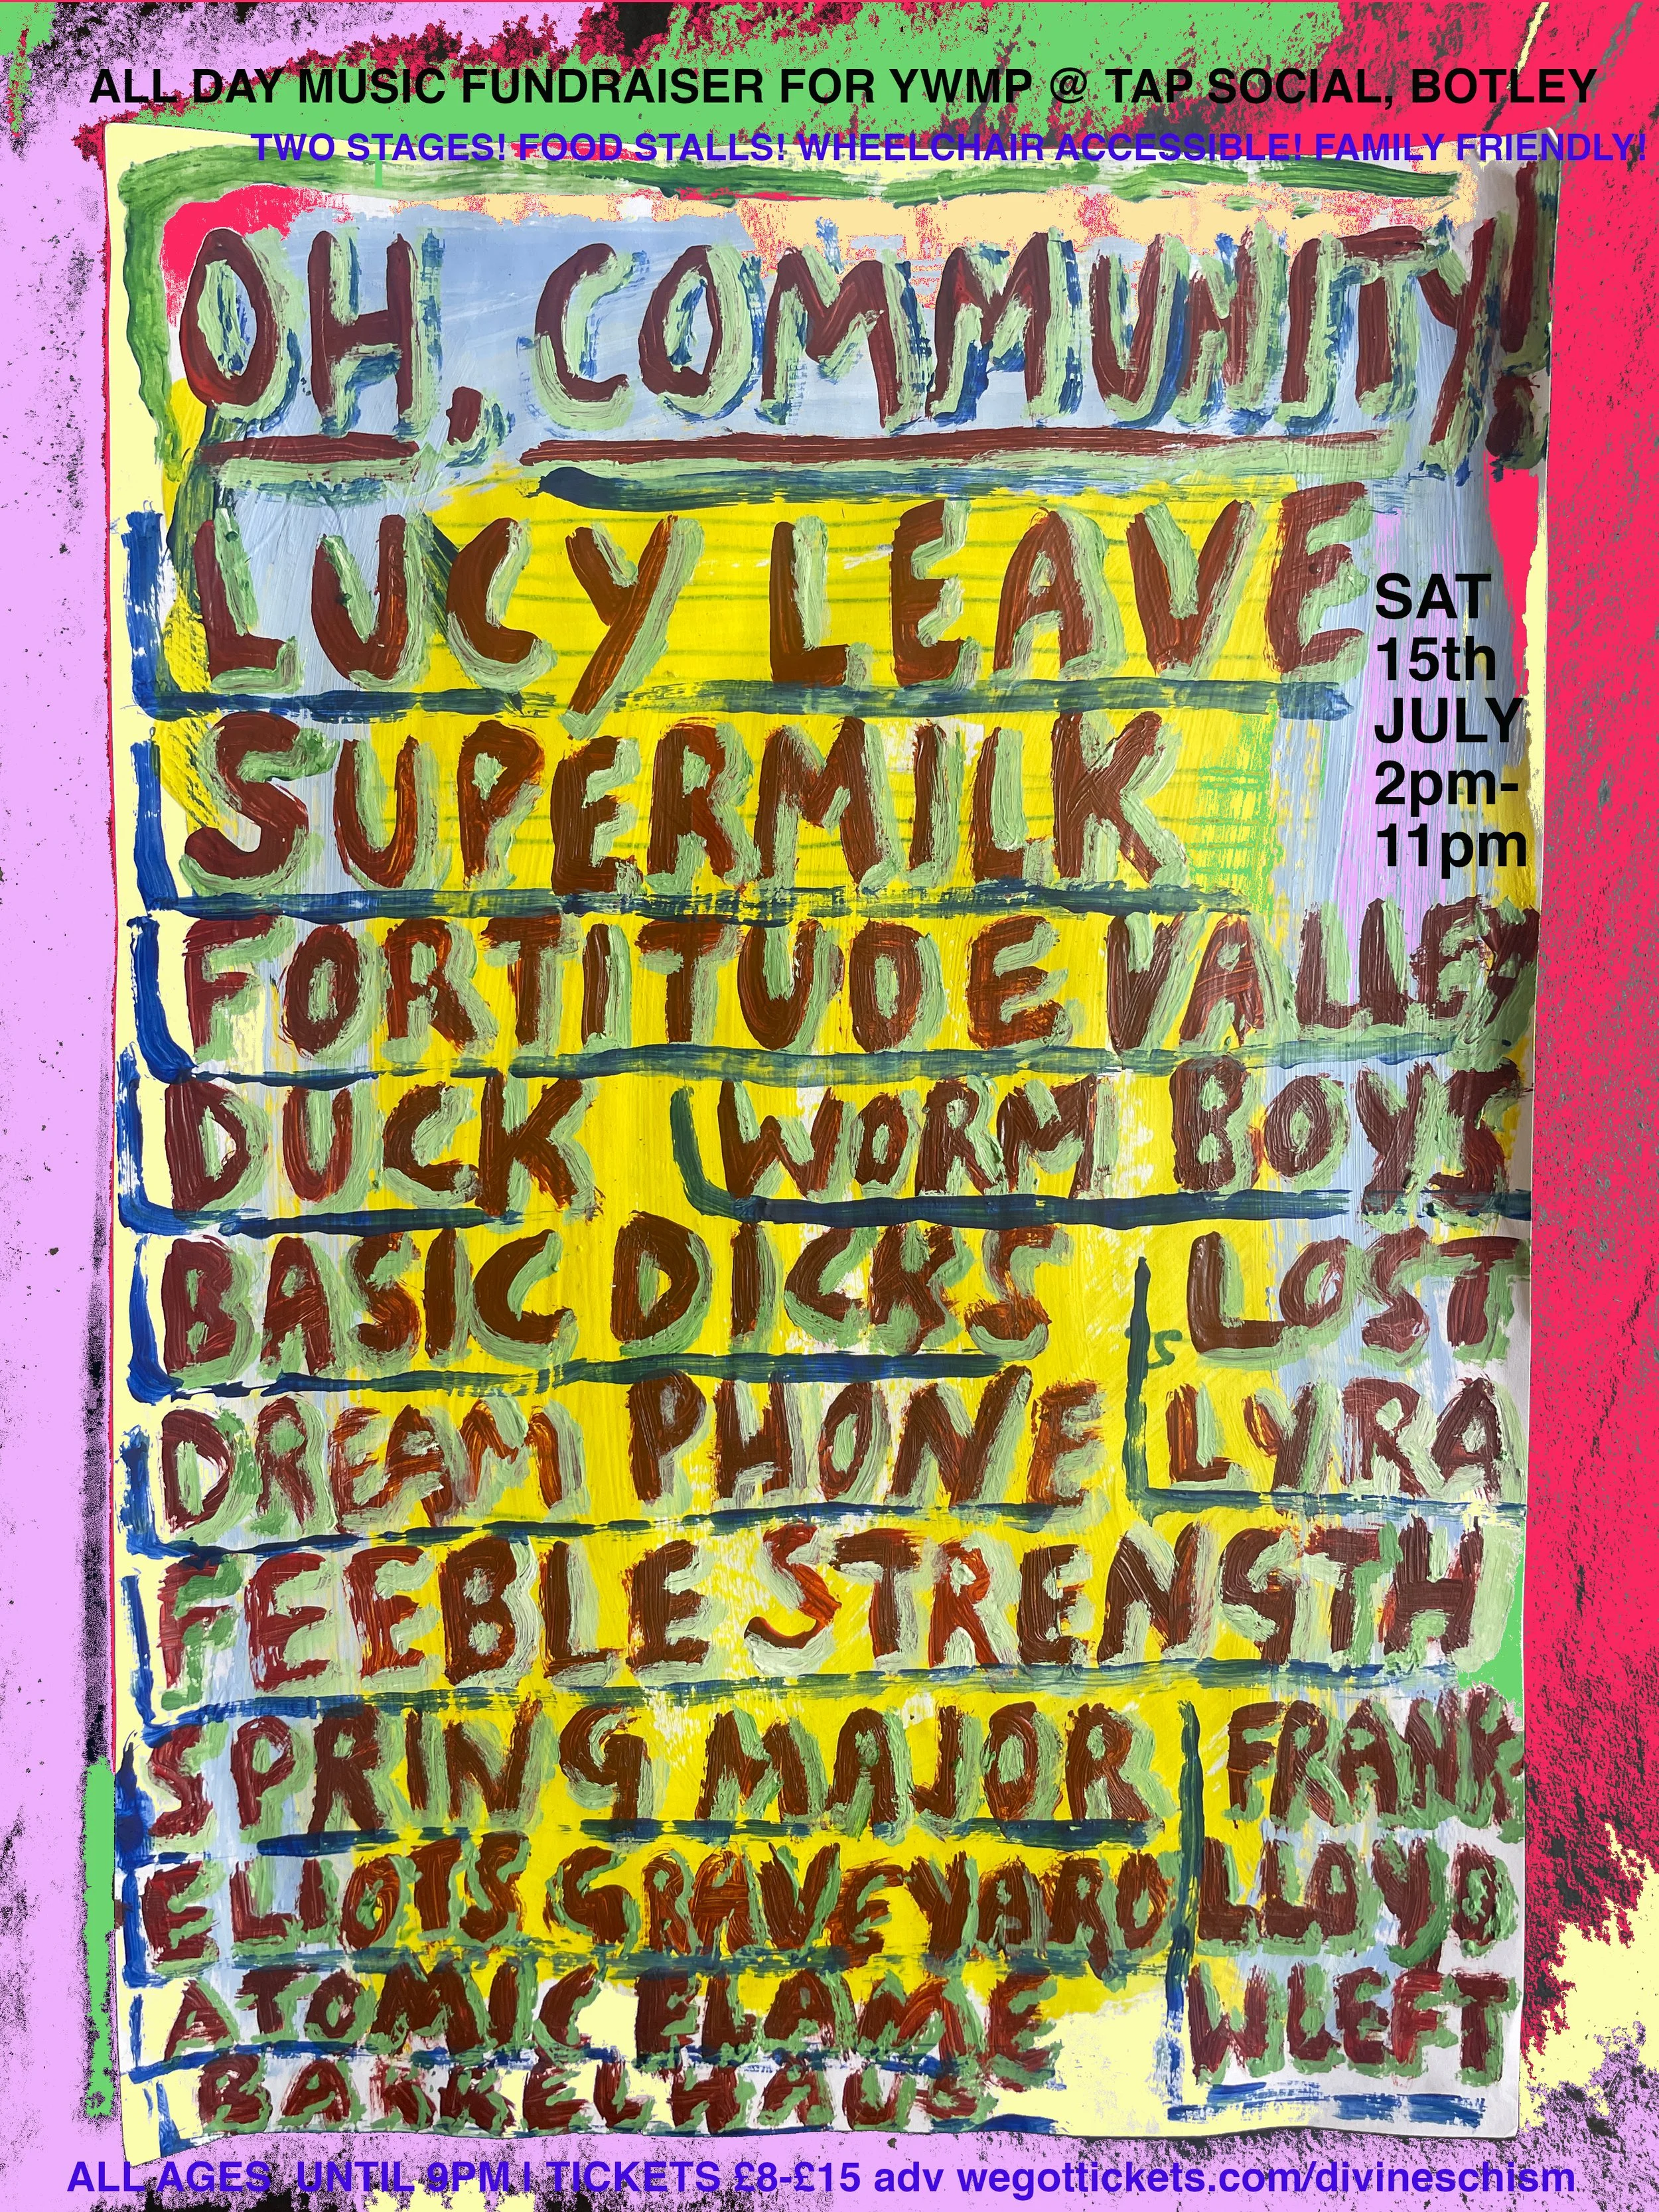 ALL DAY MUSIC FUNDRAISER FOR YWMP @ TAP SOCIAL, BOTLEY
TWO STAGES! FOOD STALLS! WHEELCHAIR ACCESSIBLE! FAMILY FRIENDLY!
OH, COMMUNITY!
LUCY LEAVE
SAT
15th
JULY
2pm-
11pm
SUPERMILK
FORTITUDE VALLEY
DUCK WORM BOYS
BASIC DICKS
LOST
LYRA
DREAM PHONE
FEEBLE STRENGTH
SPRING MAJOR
FRANK
LLOYD
WLEFT
ELIOTS GRAVEYARD
ATOMIC FLAME
BARRELHAUS
ALL AGES UNTIL 9PM | TICKETS £8-£15 adv wegottickets.com/divineschism